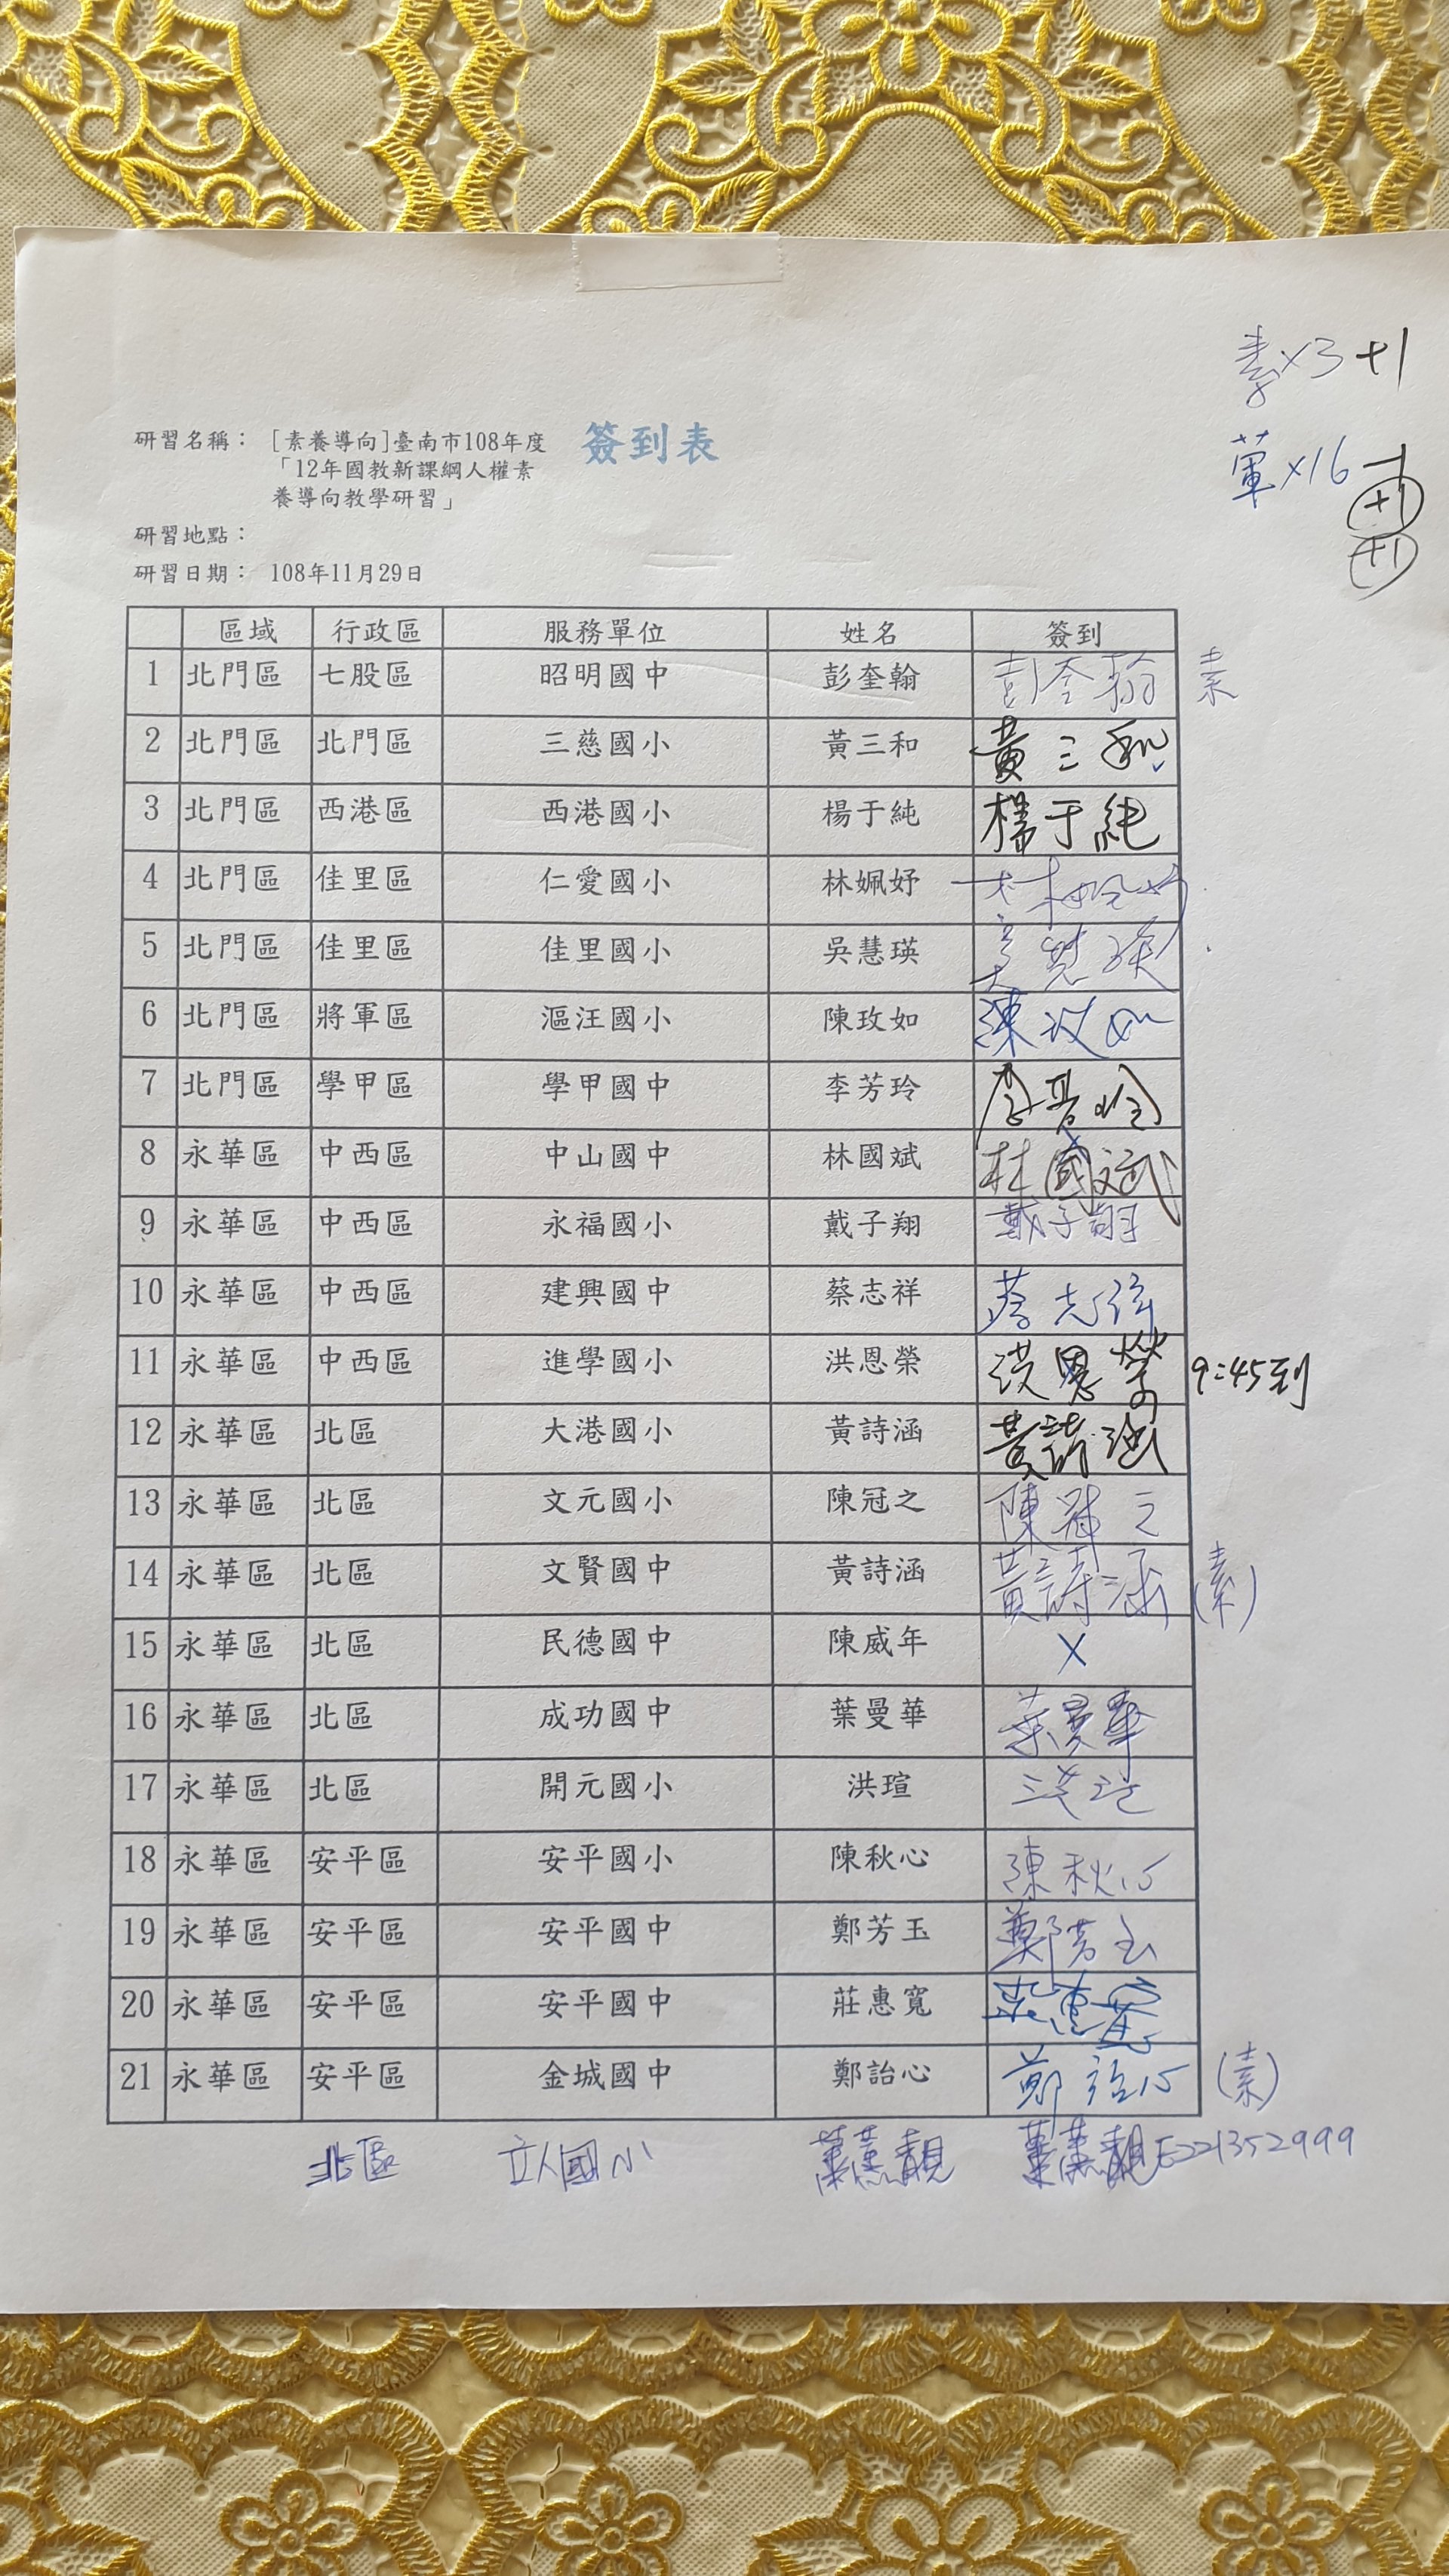 素x3+1
葷x16
+1
+1
研習名稱： [素養導向]臺南市108年度 簽到表
「12年國教新課綱人權素
養導向教學研習」
研習地點：
研習日期： 108年11月29日
區域 行政區 服務單位 姓名 簽到
1 北門區 七股區 昭明國中 彭奎翰 彭奎翰 素
2 北門區 北門區 三慈國小 黃三和 黃三和
3 北門區 西港區 西港國小 楊于純 楊于純
4 北門區 佳里區 仁愛國小 林姵妤 林姵妤
5 北門區 佳里區 佳里國小 吳慧瑛 吳慧瑛
6 北門區 將軍區 漚汪國小 陳玫如 陳玫如
7 北門區 學甲區 學甲國中 李芳玲 李芳玲
8 永華區 中西區 中山國中 林國斌 林國斌
9 永華區 中西區 永福國小 戴子翔 戴子翔
10 永華區 中西區 建興國中 蔡志祥 蔡志祥
11 永華區 中西區 進學國小 洪恩榮 洪恩榮 9:45到
12 永華區 北區 大港國小 黃詩涵 黃詩涵
13 永華區 北區 文元國小 陳冠之 陳冠之
14 永華區 北區 文賢國中 黃詩涵 黃詩涵 (素)
15 永華區 北區 民德國中 陳威年 X
16 永華區 北區 成功國中 葉曼華 葉曼華
17 永華區 北區 開元國小 洪瑄 洪瑄
18 永華區 安平區 安平國小 陳秋心 陳秋心
19 永華區 安平區 安平國中 鄭芳玉 鄭芳玉
20 永華區 安平區 安平國中 莊惠寬 莊惠寬
21 永華區 安平區 金城國中 鄭詒心 鄭詒心 (素)
北區 立人國小 E221352999